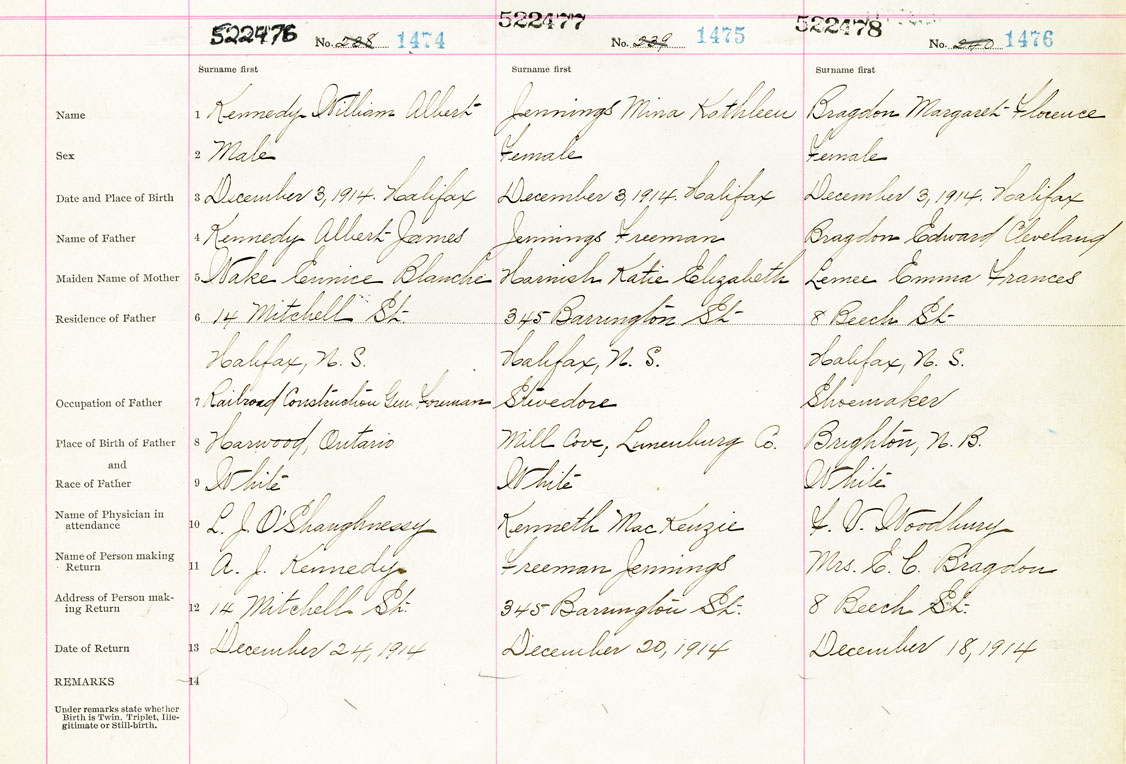 522476 No. 238 1474
522477 No. 239 1475
522478 No. 240 1476
Surname first Surname first Surname first
Name 1 Kennedy William Albert Jennings Mina Kathleen Bragdon Margaret Florence
Sex 2 Male Female Female
Date and Place of Birth 3 December 3, 1914. Halifax December 3, 1914. Halifax December 3, 1914. Halifax
Name of Father 4 Kennedy Albert James Jennings Freeman Bragdon Edward Cleveland
Maiden Name of Mother 5 Nake Eunice Blanche Harnish Katie Elizabeth Lemee Emma Frances
Residence of Father 6 14 Mitchell St. 345 Barrington St. 8 Beech St.
Halifax, N. S. Halifax, N. S. Halifax, N. S.
Occupation of Father 7 Railroad Construction Gen. Foreman Stevedore Shoemaker
Place of Birth of Father 8 Harwood, Ontario Mill Cove, Lunenburg Co. Brighton, N. B.
and
Race of Father 9 White White White
Name of Physician in
attendance 10 L. J. O'Shaughnessy Kenneth MacKenzie F. V. Woodbury
Name of Person making
Return 11 A. J. Kennedy Freeman Jennings Mrs. E. C. Bragdon
Address of Person mak-
ing Return 12 14 Mitchell St. 345 Barrington St. 8 Beech St.
Date of Return 13 December 24, 1914 December 20, 1914 December 18, 1914
REMARKS 14
Under remarks state whether
Birth is Twin, Triplet, Ille-
gitimate or Still-birth.